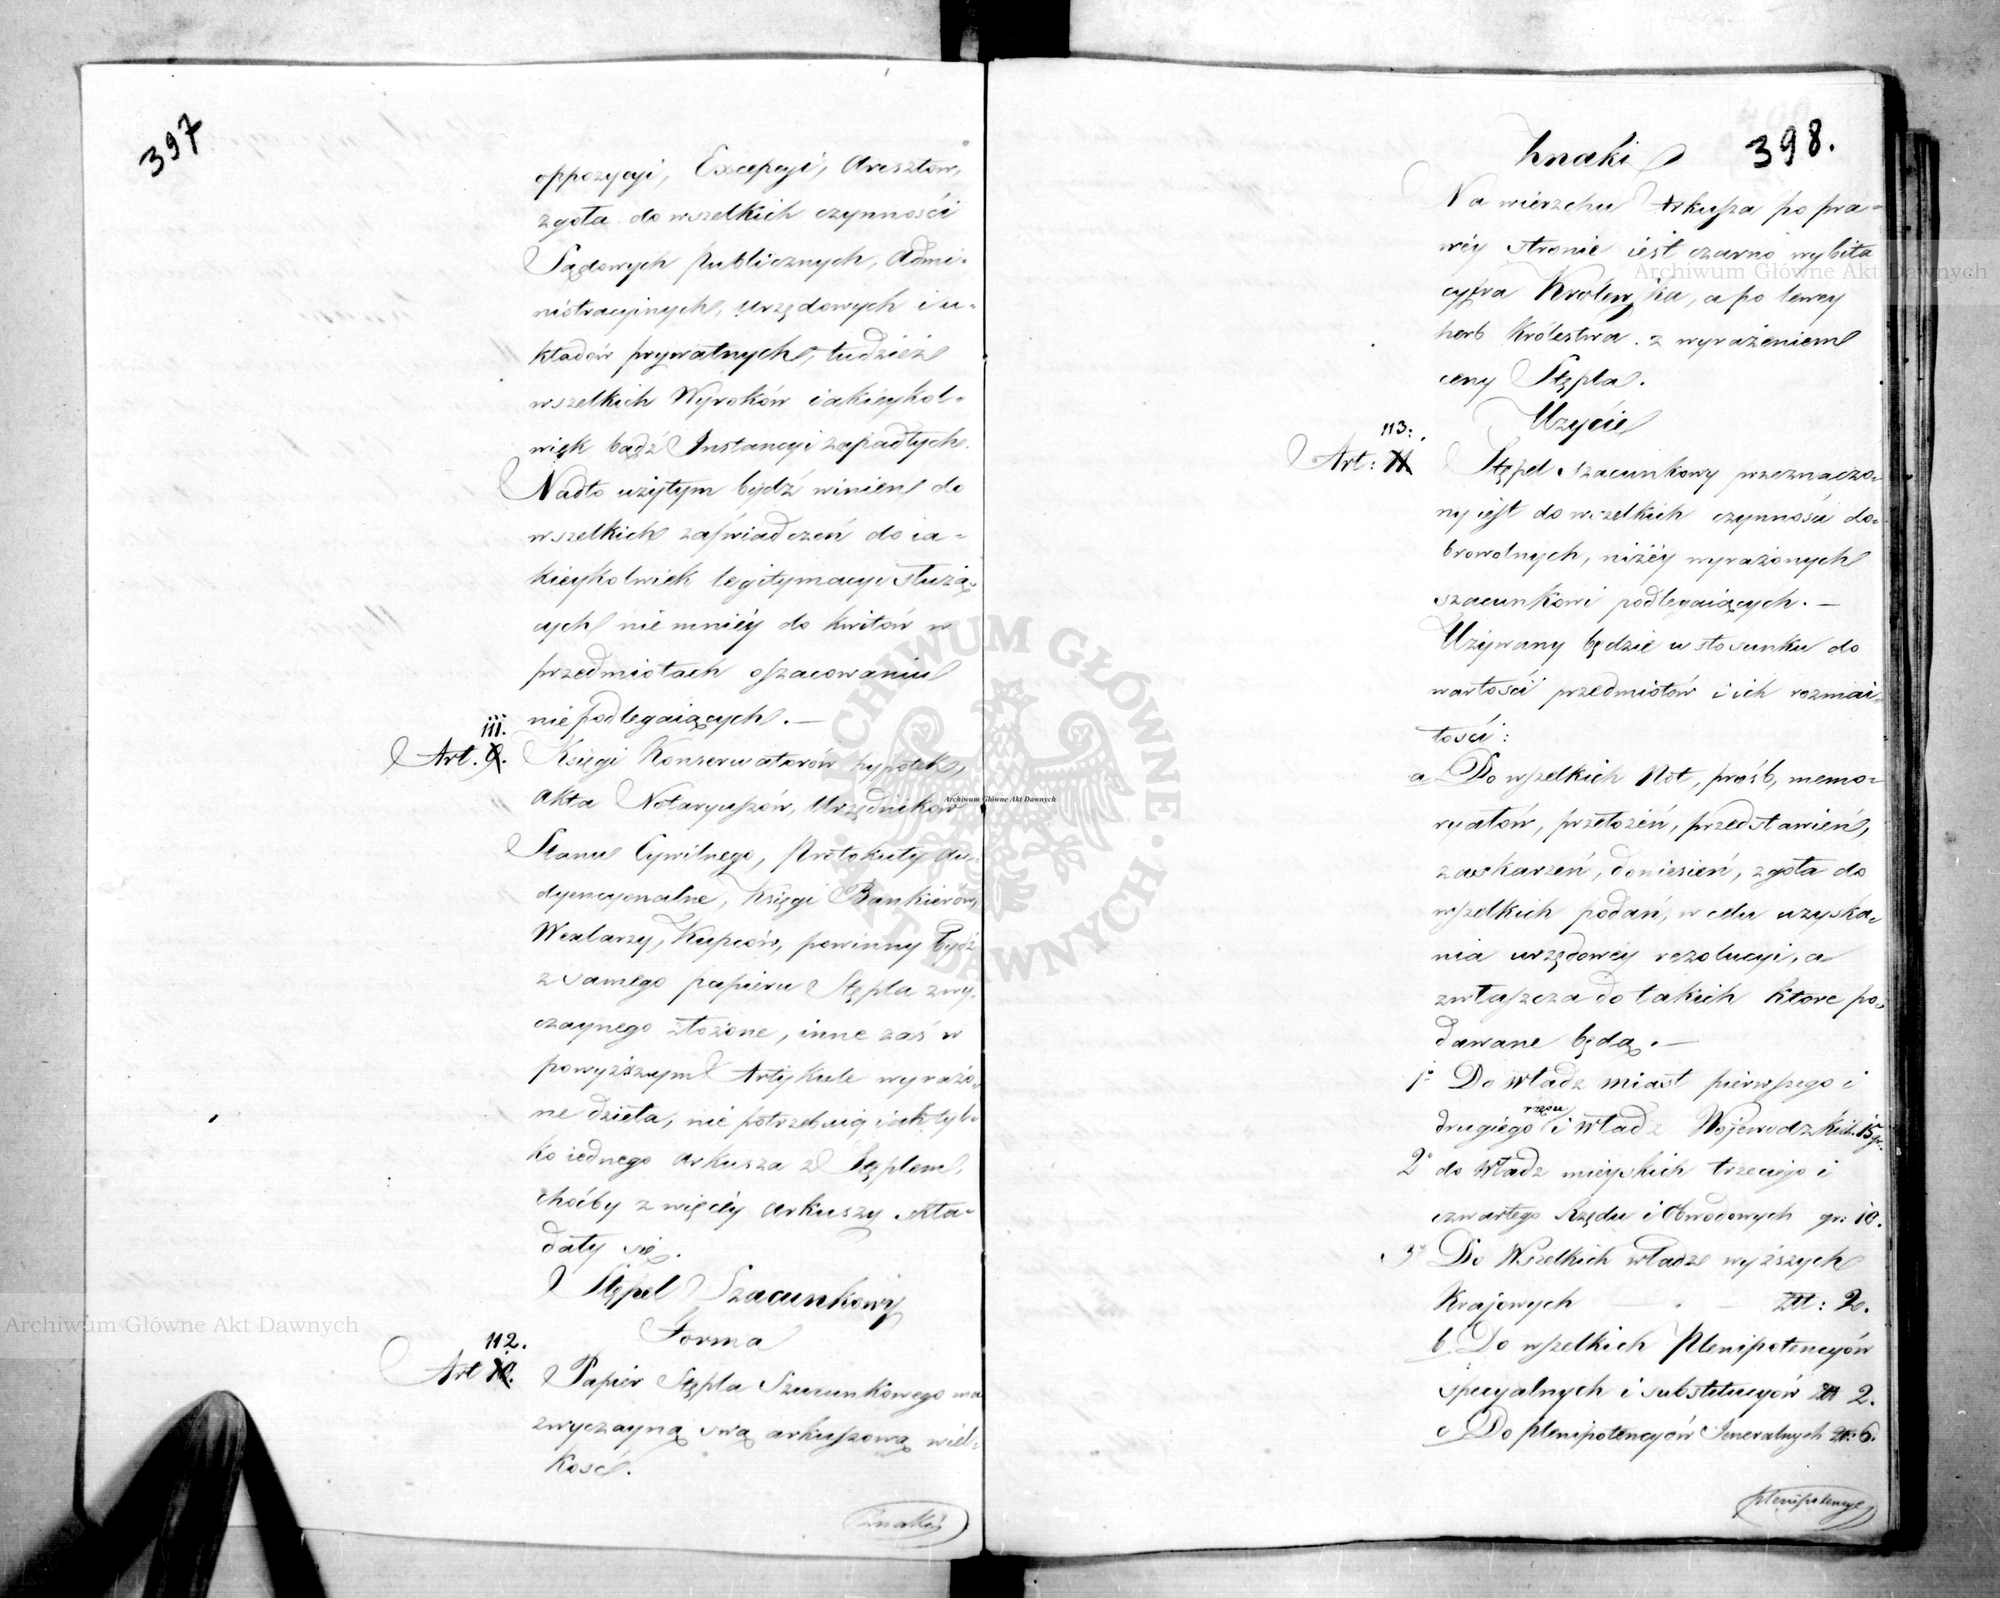 397
oppozycyi, Excepcyi, Aresztów,
zgoła do wszelkich czynności
Sądowych Publicznych, Admi-
nistracyinych, urzędowych i u-
kładów prywatnych, tudzież
wszelkich Wyroków iakieykol-
wiek bądź Instancyi zapadłych.
Nadto użytym bydź winien do
wszelkich zaświadczeń do ia-
kieykolwiek legitymacyi służą-
cych niemniéy do kwitów w
przedmiotach oszacowaniu
niepodlegaiących. —
111.
Art. 9. Księgi Konserwatorów hypotek,
akta Notaryuszów, Urzędników
Stanu Cywilnego, Protokuły Au-
dyencyonalne, Księgi Bankierów,
Wexlarzy, Kupców, powinny bydź
z samego papieru Stępla zwy-
czaynego złożone, inne zaś w
powyższym Artykule wyrażo-
ne dzieła, nie potrzebuią iak tyl-
ko iednego arkusza z Stęplem,
choćby z więcéy arkuszy skła-
dały się.
Stępel Szacunkowy
Forma
112.
Art 10. Papier Stępla Szacunkowego ma
zwyczayną swą arkuszową wiel-
kość.
Znaki
398.
Znaki
Na wierzchu Arkusza po pra-
wéy stronie iest czarno wybita
cyfra Krolewska, a po lewey
herb Królestwa z wyrażeniem
ceny Stępla.
Użycie
113.
Art: 11 Stępel szacunkowy przeznaczo-
ny iest do wszelkich czynności do-
browolnych, niżéy wyrażonych
szacunkowi podlegaiących. —
Używany będzie w stosunku do
wartości przedmiotów i ich rozmai-
tości:
a Do wszelkich Not, prośb, memo-
ryałów, przełożeń, przedstawień,
zaskarzeń, doniesień, zgoła do
wszelkich podań, w celu uzyska-
nia urzędowéy rezolucyi, a
zwłaszcza do takich ktore po-
dawane będą. —
1o Do Władz miast pierwszego i
rzędu
drugiego i Władz Wojewodzkich 15 gr.
2o do Władz mieyskich trzeciego i
czwartego Rzędu i Obwodowych gr: 10.
3o Do Wszelkich władz wyższych
Krajowych — — Złł: 2.
b Do wszelkich Plenipotencyów
specyalnych i substytucyów Złł 2.
c Do plenipotencyów Jeneralnych Zł: 6.
plenipotencye
Archiwum Główne Akt Dawnych
Archiwum Główne Akt Dawnych
Archiwum Główne Akt Dawnych
ARCHIWUM GŁÓWNE AKT DAWNYCH